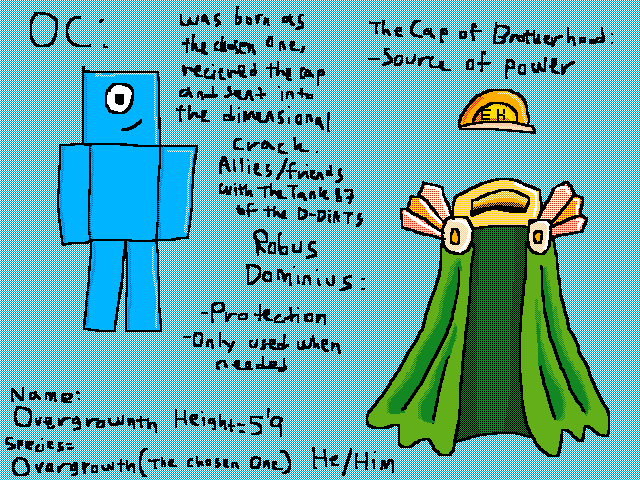 OC:
was born as
the chosen one,
recieved the cap
and sent into
the dimensional
crack.
Allies/friends
with TheTank87
of the D-DIRTS
The Cap of Brotherhood:
-Source of power
EH
Robus
Dominius:
-Protection
-Only used when
needed
Name:
Overgrownth Height=5'9
Species=
Overgrowth(The chosen One) He/Him